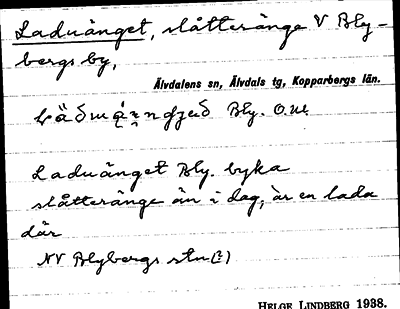 Laduänget, slåtteränge V Bly-
bergs by,
Älvdalens sn, Älvdals tg, Kopparbergs län.
Bly. O.m.
Laduänget Bly. byka
slåtteränge än i dag, är en lada
där
NV Blybergs stn(?)
HELGE LINDBERG 1938.